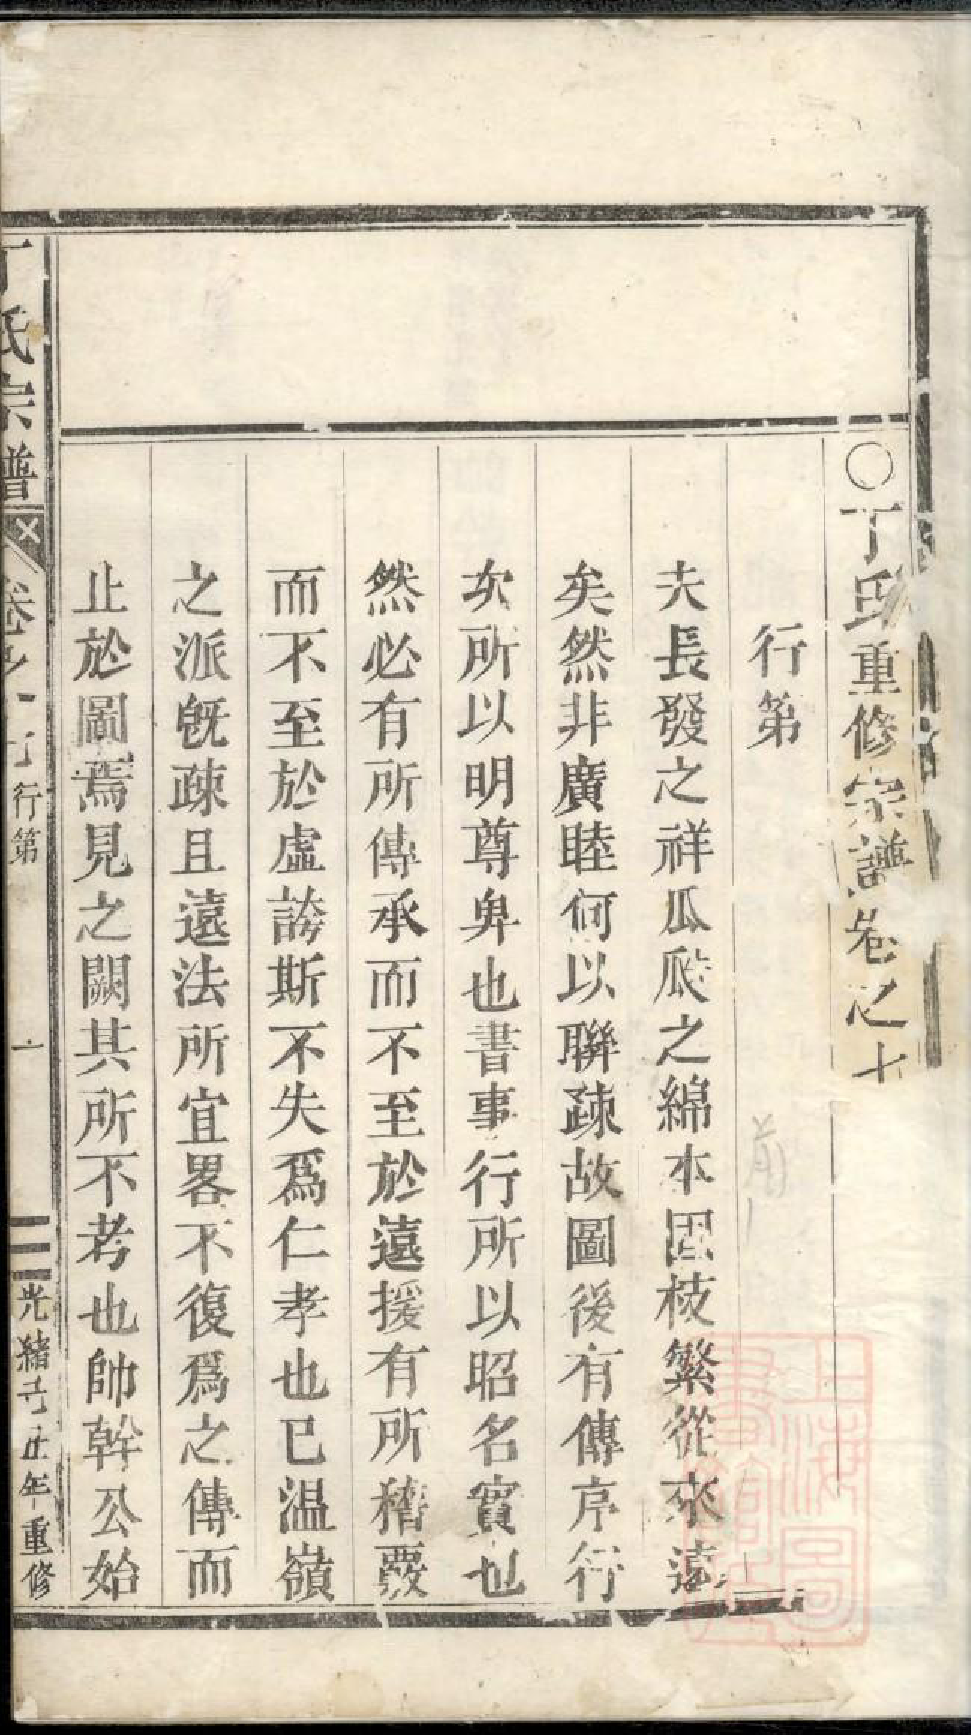 〇丁邱重修宗譜卷之七
行第
夫長發之祥瓜瓞之綿本固枝繁從來遠
矣然非廣睦何以聯疎故圖後有傳序行
次所以明尊卑也書事行所以昭名實也
然必有所傳承而不至於遠援有所稽覈
而不至於虛誇斯不失爲仁孝也已温嶺
之派旣疎且遠法所宜畧不復爲之傳而
止於圖焉見之闕其所不考也帥幹公始
丁氏宗譜
卷之
行第
一
光緒
年重修
上海圖書館藏